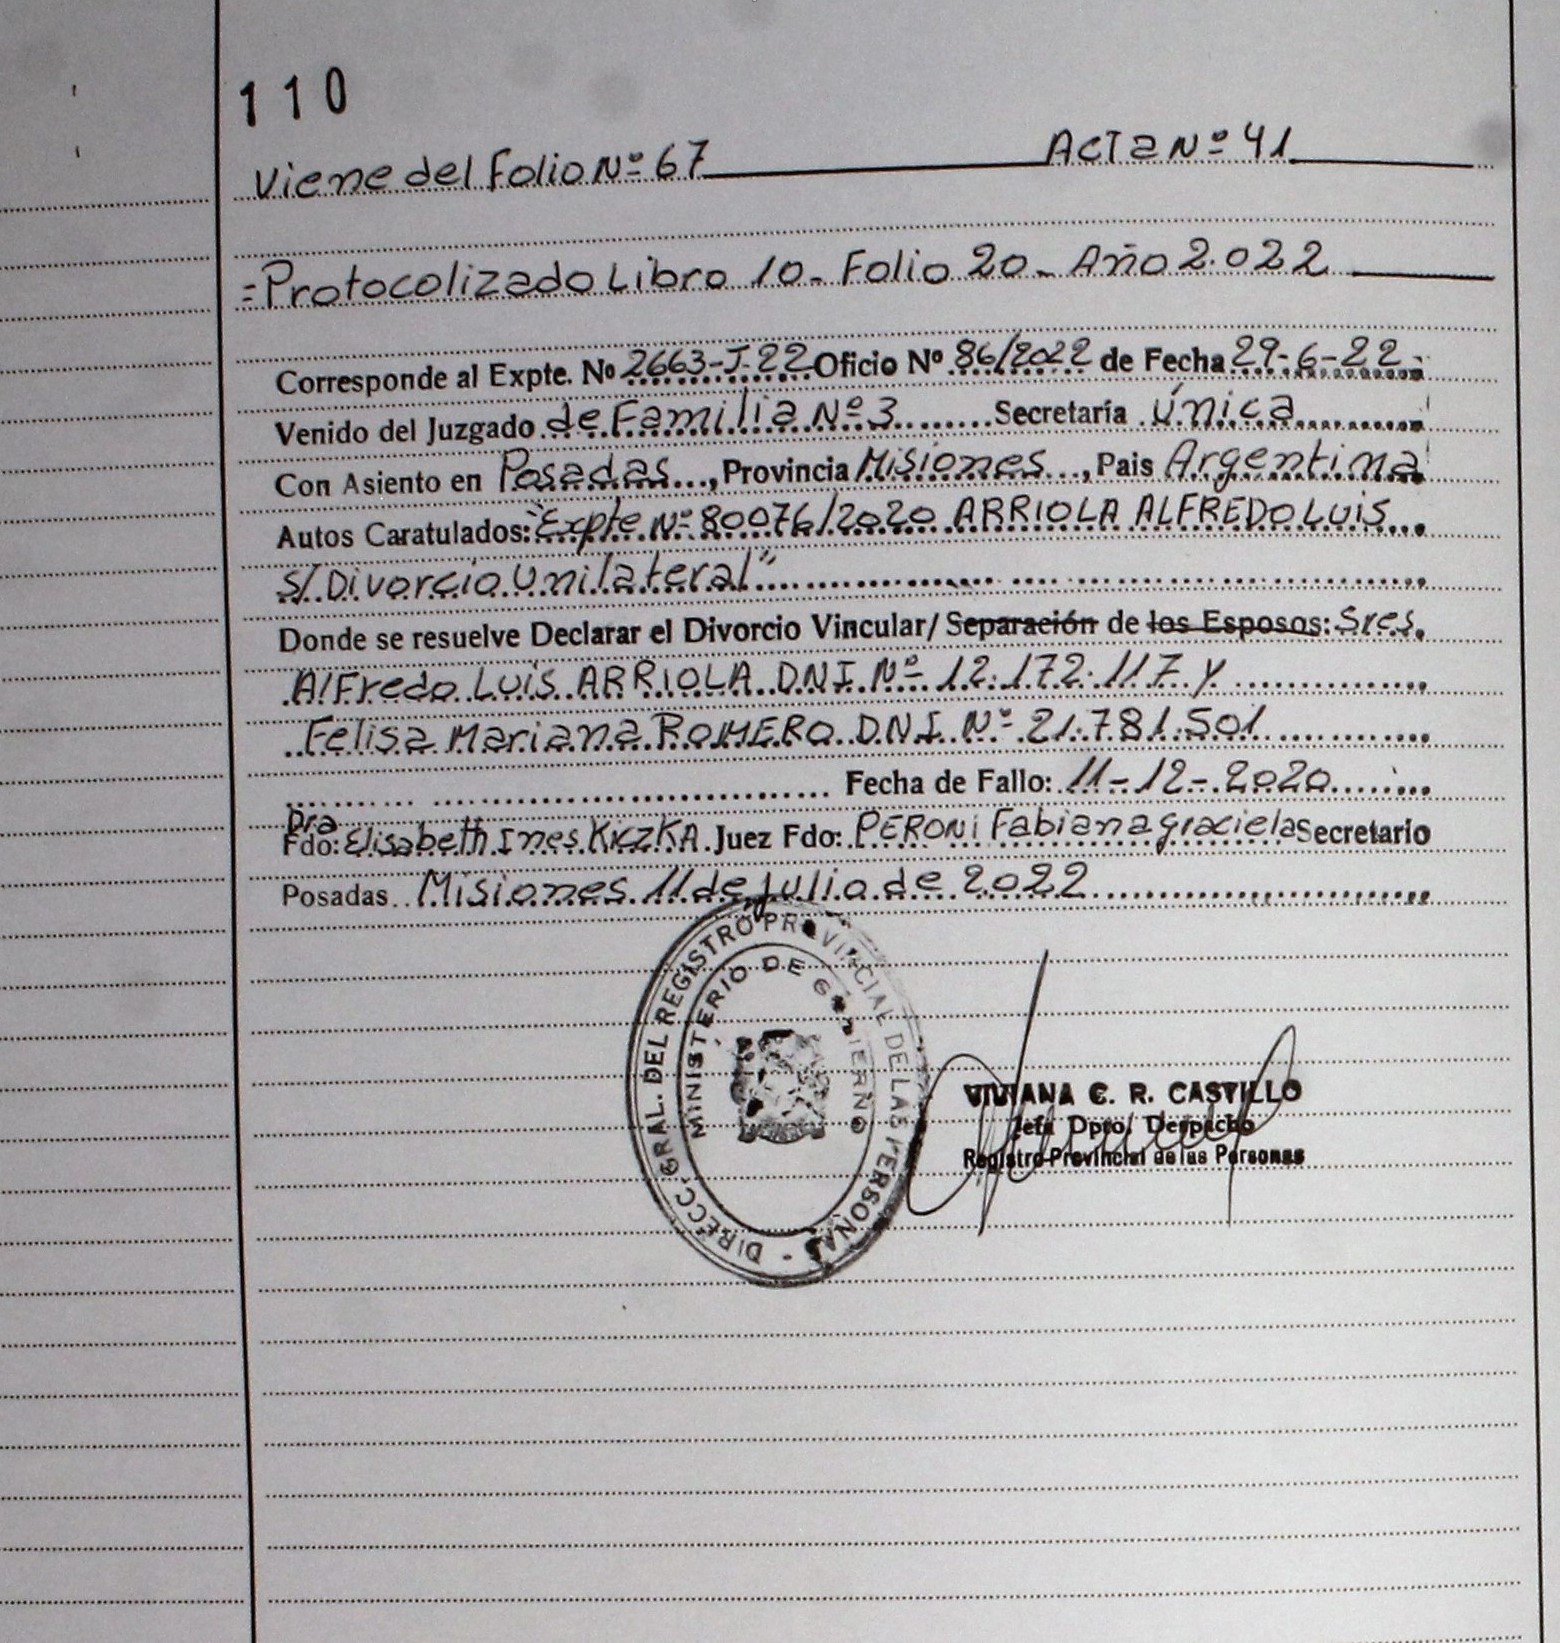 110
Viene del Folio Nº 67 Acta Nº 41
=Protocolizado Libro 10- Folio 20- Año 2.022
Corresponde al Expte. Nº 2663-J-22 Oficio Nº 86/2022 de Fecha 29-6-22-
Venido del Juzgado de Familia Nº 3 Secretaría única
Con Asiento en Posadas, Provincia Misiones, Pais Argentina
Autos Caratulados: "Expte Nº 80076/2020 ARRIOLA ALFREDO LUIS
S/ Divorcio Unilateral"
Donde se resuelve Declarar el Divorcio Vincular/ Separación de los Esposos: Sres.
Alfredo Luis ARRIOLA DNI Nº 12.172.117 y
Felisa Mariana ROMERO DNI Nº 21.781.501
Fecha de Fallo: 11-12-2020
Dra
Fdo: Elisabeth Ines KICZKA Juez Fdo: PERONI Fabiana graciela Secretario
Posadas Misiones 11 de julio de 2022
DIRECC. GRAL. DEL REGISTRO PROVINCIAL DE LAS PERSONAS -
MINISTERIO DE GOBIERNO
VIVIANA C. R. CASTILLO
Jefa Dpto. Despacho
Registro Provincial de las Personas